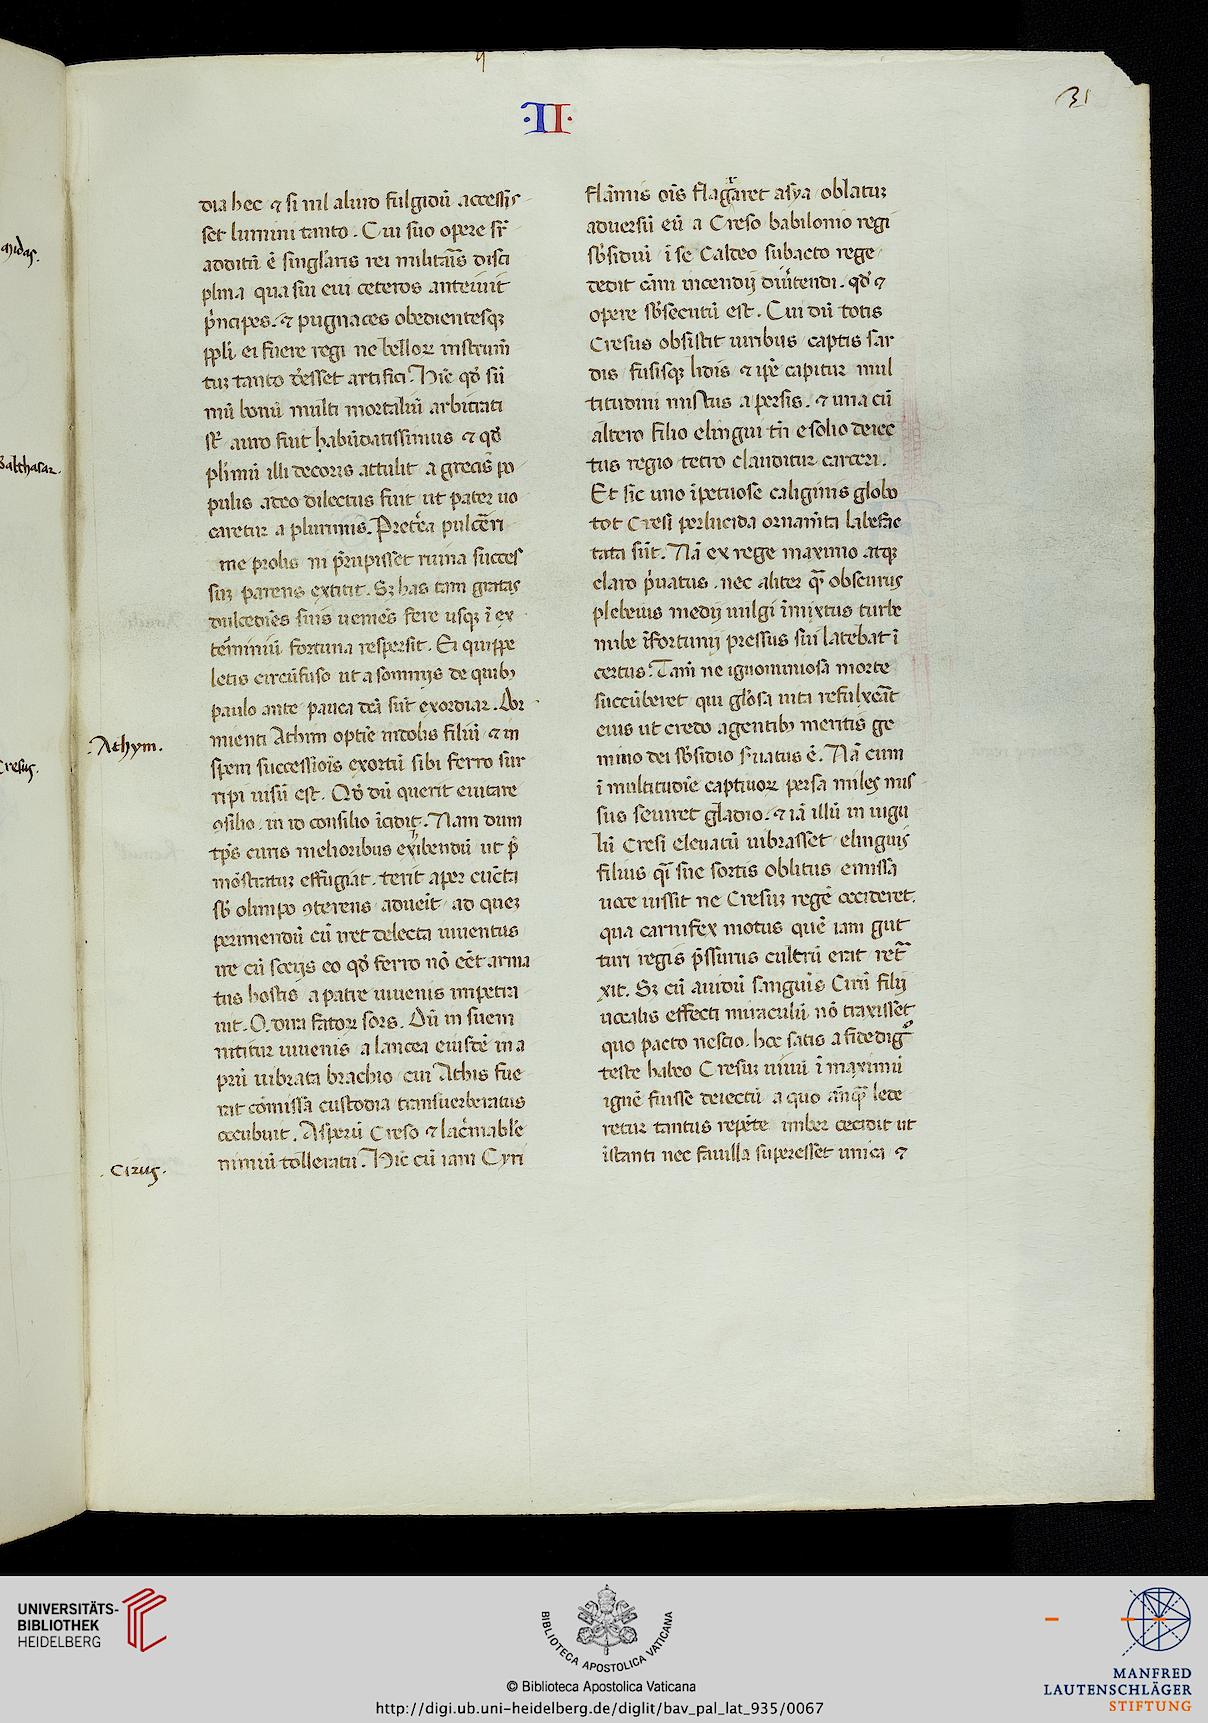 ·II·
31
midas.
Balthasar.
.Athym.
Cresus.
.Cirus.
dia hec ⁊ si nil aliud fulgidū accessis
set lumini tanto. Cui suo opere sr̄
additū ē singlaris rei militaris disci
plina qua sui eui ceteros anteiuit
p̄ncipes. ⁊ pugnaces obedientesqȝ
ppli ei fuere regi ne belloꝝ instrum̄
tuȝ tanto deesset artifici. Hic qd̄ sū
mū bonū multi mortaliū arbitrati
st̄ auro fuit habūdatissimus ⁊ qd̄
plimū illi decoris attulit a grecis po
pulis adeo dilectus fuit ut pater uo
caretur a plurimis. Pretea pulcerri
me prolis ni p̄ripisset ruina succes
suȝ parens extitit. Sȝ has tam gratas
dulcedīes suis uenenis fere usqȝ ī ex
termīniū fortuna respersit. Ei quippe
letis circūfuso ut a somnijs de quibꝰ
paulo ante pauca dcā sūt exordiar. Dor
mienti Athim optīe indolis filiū ⁊ in
spem successiōis exortū sibi ferro sur
ripi uisū est. Qd̄ dū querit euitare
ꝯsilio. in id consilio īcidit. Nam dum
tp̄s curis melioribus exhibendū ut p̄
mōstratuȝ effugiat. terit aper cūcta
sb̄ olimpo ꝯterens aduēit ad queȝ
perimendū cū iret delecta iuuentus
ire cū socijs eo qd̄ ferro nō eēt arma
tus hostis a patre iuuenis impetra
uit. O dira fatoꝝ sors. Dū in suem
nititur iuuenis a lancea eiusdē in a
prū uibrata brachio cui Athis fue
rat cōmissa custodia transuerberatus
occubuit. Asperū Creso ⁊ lacrimabile
nimiū tolleratu. Hic cū iam Cyri
flāmis oīs flagraret asya oblatuȝ
aduersū eū a Creso babilonio regi
sb̄sidiū ī se Caldeo subacto rege
dedit cām incendij diuertendi. qd̄ ⁊
opere sb̄secutū est. Cui dū totis
Cresus obsistit uiribus captis sar
dis fusisqȝ lidis ⁊ ipē capitur mul
titudini mistus a persis. ⁊ una cū
altero filio elingui tn̄ e solio deiec
tus regio tetro clauditur carceri.
Et sic uno īpetuose caliginis globo
tot Cresi perlucida ornamīta labefac
tata sūt. Nā ex rege maximo atqȝ
claro p̄uatus. nec aliter qᷓ obscurus
plebeius medij uulgi īmixtus turbe
nube īfortunij pressus sui latebat ī
certus. Tam̄ ne ignominiosā morte
succūberet qui glōsa uita refulxerāt
eius ut credo agentibꝰ meritis ge
mino dei sb̄sidio seruatus ē. Nā cum
ī multitudīe captiuoꝝ persa miles mis
sus seuiret gladio. ⁊ iā illū in iugu
lū Cresi eleuatū uibrasset elinguis
filius qī sue sortis oblitus emissa
uoce iussit ne Cresuȝ regē occideret.
qua carnifex motus quē iam gut
turi regis p̄ssurus cultrū erat retᷓ
xit. Sȝ cū auidū sanguis Cirū filij
uocalis effecti miraculū nō traxisset
quo pacto nescio. hoc satis a fide digͦ
teste habeo Cresuȝ uiuū ī maximū
ignē fuisse deiectū a quo anqᷓ lede
retur tantus repēte imber cecidit ut
īstanti nec fauilla superesset unica ⁊
UNIVERSITÄTS-
BIBLIOTHEK
HEIDELBERG
BIBLIOTECA APOSTOLICA VATICANA
© Biblioteca Apostolica Vaticana
http://digi.ub.uni-heidelberg.de/diglit/bav_pal_lat_935/0067
MANFRED
LAUTENSCHLÄGER
STIFTUNG